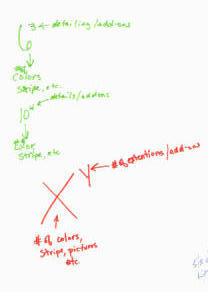 3 ← detailing/add-ons
6
# of
Colors
stripe, etc.
4 ← details/addons
10
# of
Color
Stripe, etc
Y ← # of extentions/add-ons
X
# of colors,
stripe, pictures
etc.